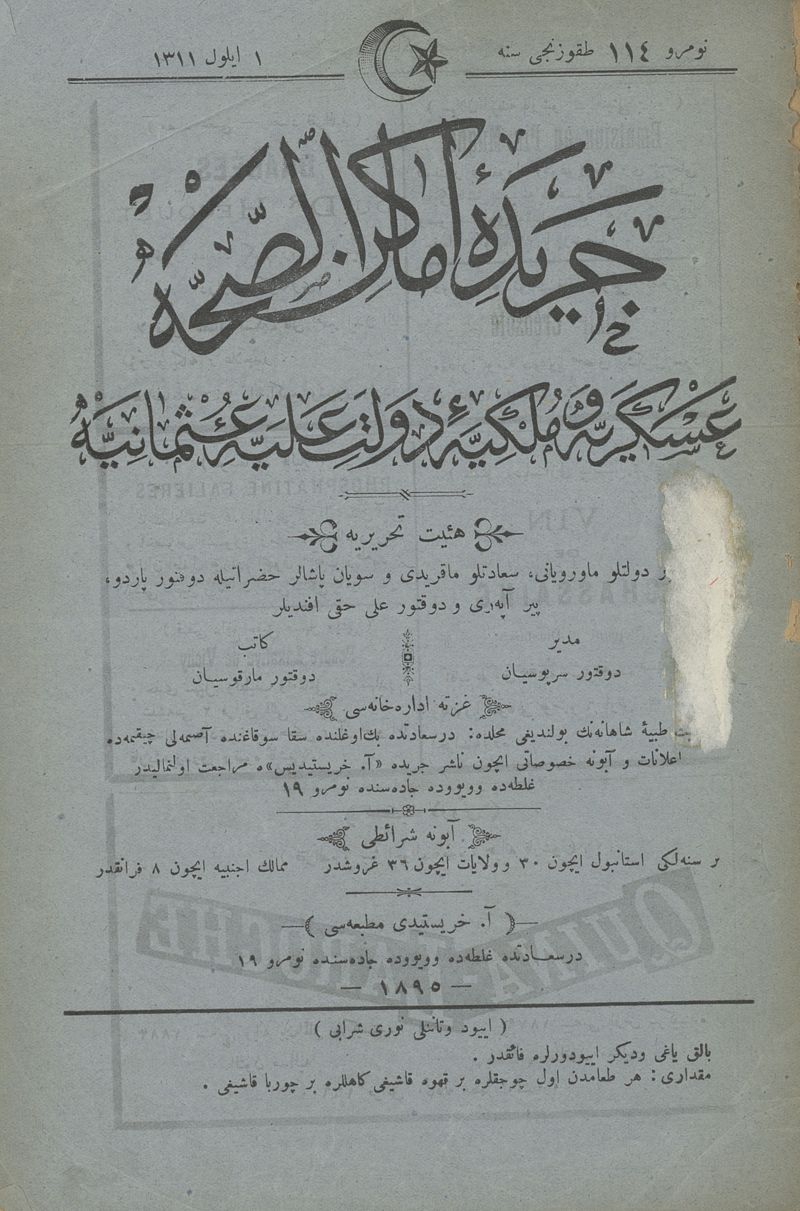 نومرو ١١٤ طقوزنجی سنه
١ ایلول ١٣١١
جریدهٔ اماكن الصحّه
عسكریه و ملكیهٔ دولت علیه عثمانیه
هئیت تحریریه
دولتلو ماورویانی، سعادتلو ماقریدی و سویان پاشالر حضراتیله دوقتور پاردو،
پیر آپەری و دوقتور علی حقی افندیلر
مدیر
دوقتور سرپوسیان
كاتب
دوقتور مارقوسیان
غزته اداره‌خانه‌سی
طبیهٔ شاهانه‌نك بولندیغی محلده: درسعادتده بك‌اوغلنده سقا سوقاغنده آصمه‌لی چیقمه‌ده
اعلانات و آبونه خصوصاتی ایچون ناشر جریده «آ. خریستیدیس»ه مراجعت اولنمالیدر
غلطه‌ده وویووده جاده‌سنده نومرو ١٩
آبونه شرائطی
بر سنه‌لكی استانبول ایچون ٣٠ و ولایات ایچون ٣٦ غروشدر ممالك اجنبیه ایچون ٨ فرانقدر
( آ. خریستیدی مطبعه‌سی )
درسعادتده غلطه‌ده وویووده جاده‌سنده نومرو ١٩
— ١٨٩٥ —
( اییود وتاننلی نوری شرابی )
بالق یاغی ودیكر اییودورلره فائقدر .
مقداری : هر طعامدن اول چوجقلره بر قهوه قاشیغی كاهللره بر چوربا قاشیغی .